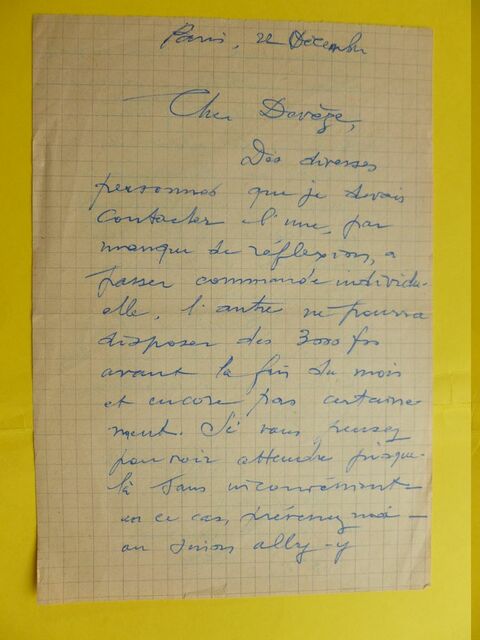 Paris, 22 Décembre
Cher Devège,
Des diverses
personnes que je devais
contacter l'une, par
manque de réflexion, a
passer commande individu-
elle, l'autre ne pourra
disposer des 3000 frs
avant la fin du mois
et encore pas certaine
ment. Si vous pensez
pouvoir attendre jusque-
là sans inconvénients
en ce cas, prévenez moi —
ou sinon allez-y